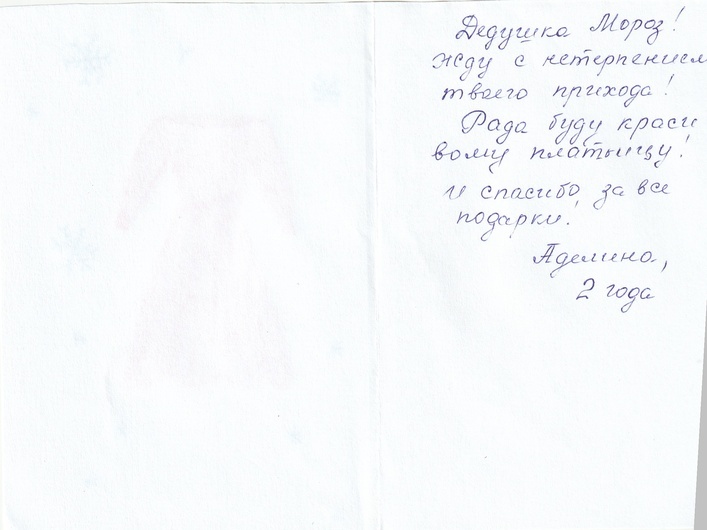 Дедушка Мороз!
Жду с нетерпением
твоего прихода!
Рада буду краси
вому платьицу!
и спасибо за все
подарки!
Аделина,
2 года